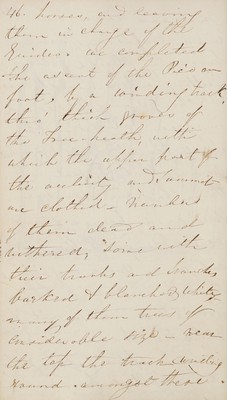 46. horses, and leaving
them in charge of the
Guides. we completed
the ascent of the Pico on
foot, by a winding track,
thro' thick groves of
the Tree-heath, with
which the upper part of
the acclivity and summit
are clothed. Numbers
of them dead and
withered, some with
their trunks and branches
barked & blanched white
many of them trees of
considerable size - near
the top the track winding
round amongst these